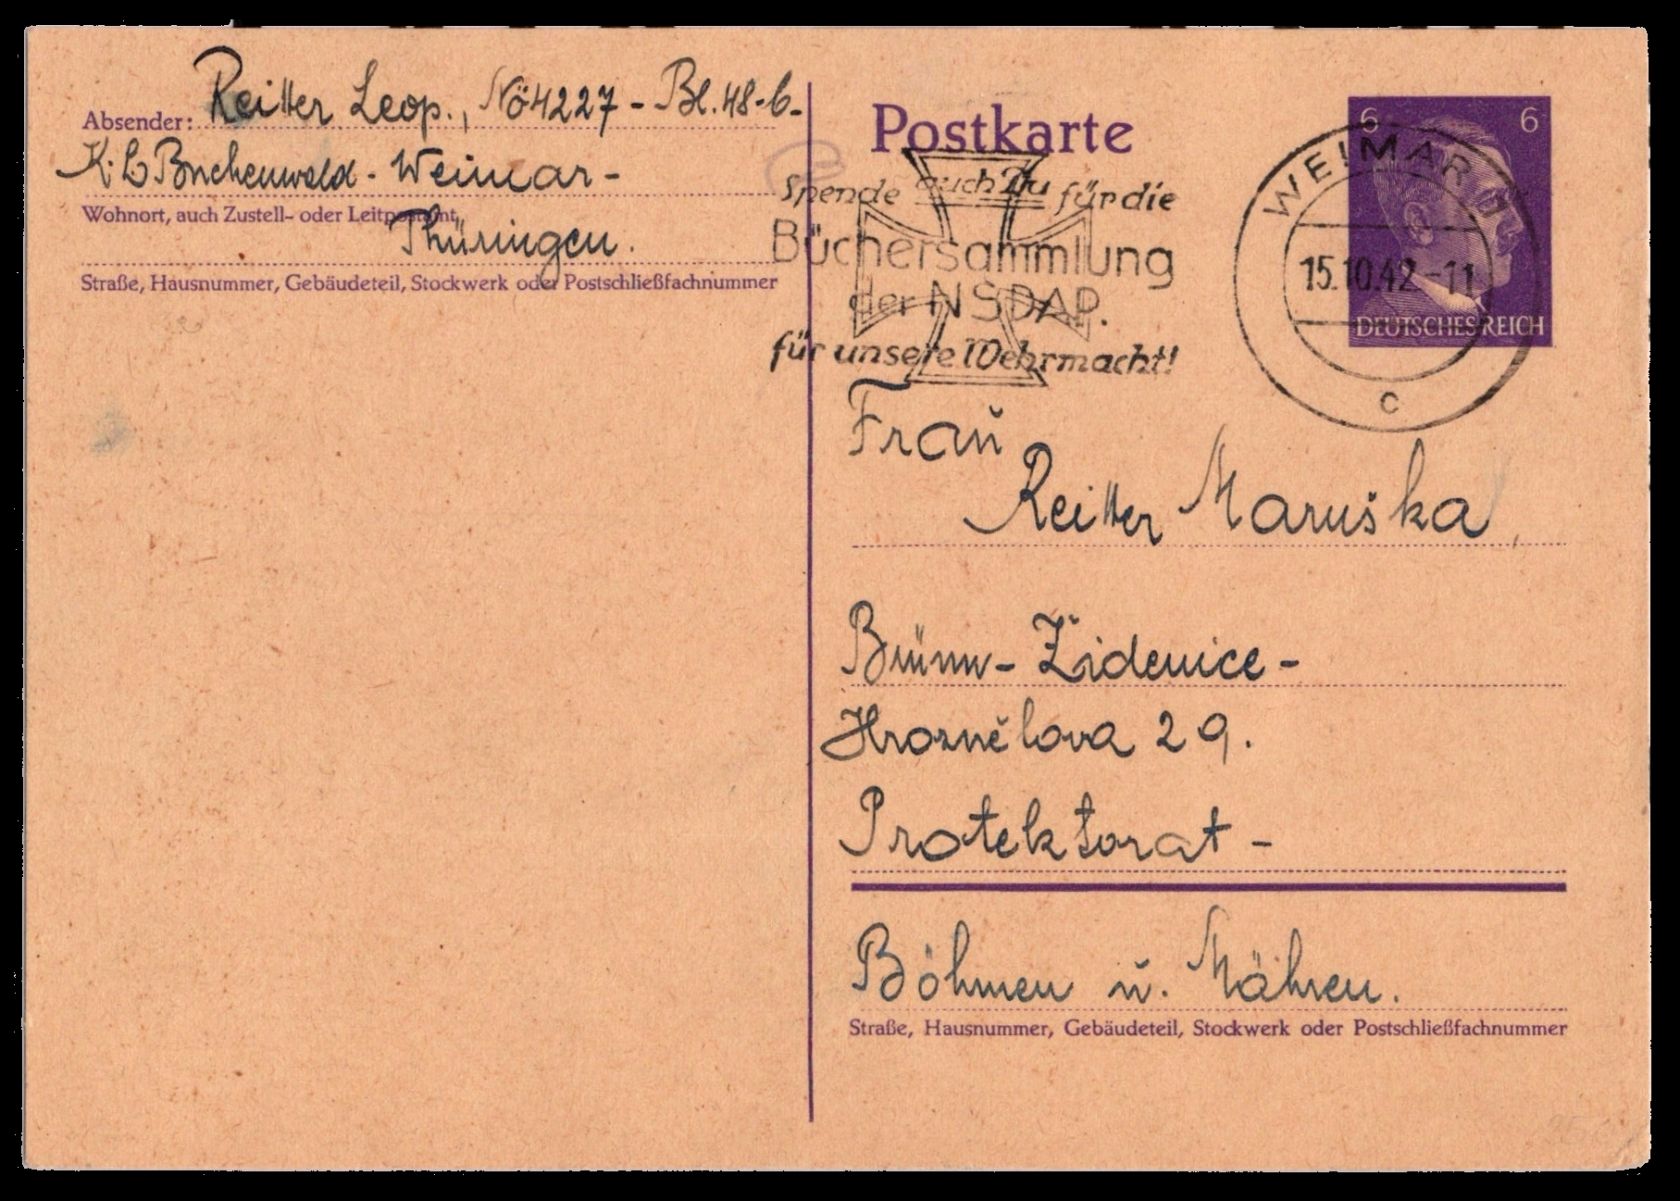 Absender: Reitter Leop., No 4227 - Bl. 48-b-
K. L Buchenwald - Weimar -
Wohnort, auch Zustell- oder Leitpostamt
Thüringen.
Straße, Hausnummer, Gebäudeteil, Stockwerk oder Postschließfachnummer
Postkarte
Spende auch Du für die
Büchersammlung
der NSDAP.
für unsere Wehrmacht!
6 6
DEUTSCHES REICH
WEIMAR 1
15.10.42.-11
c
Frau
Reitter Maruška
Brünn - Židenice -
Hroznělova 29.
Protektorat -
Böhmen u. Mähren.
Straße, Hausnummer, Gebäudeteil, Stockwerk oder Postschließfachnummer